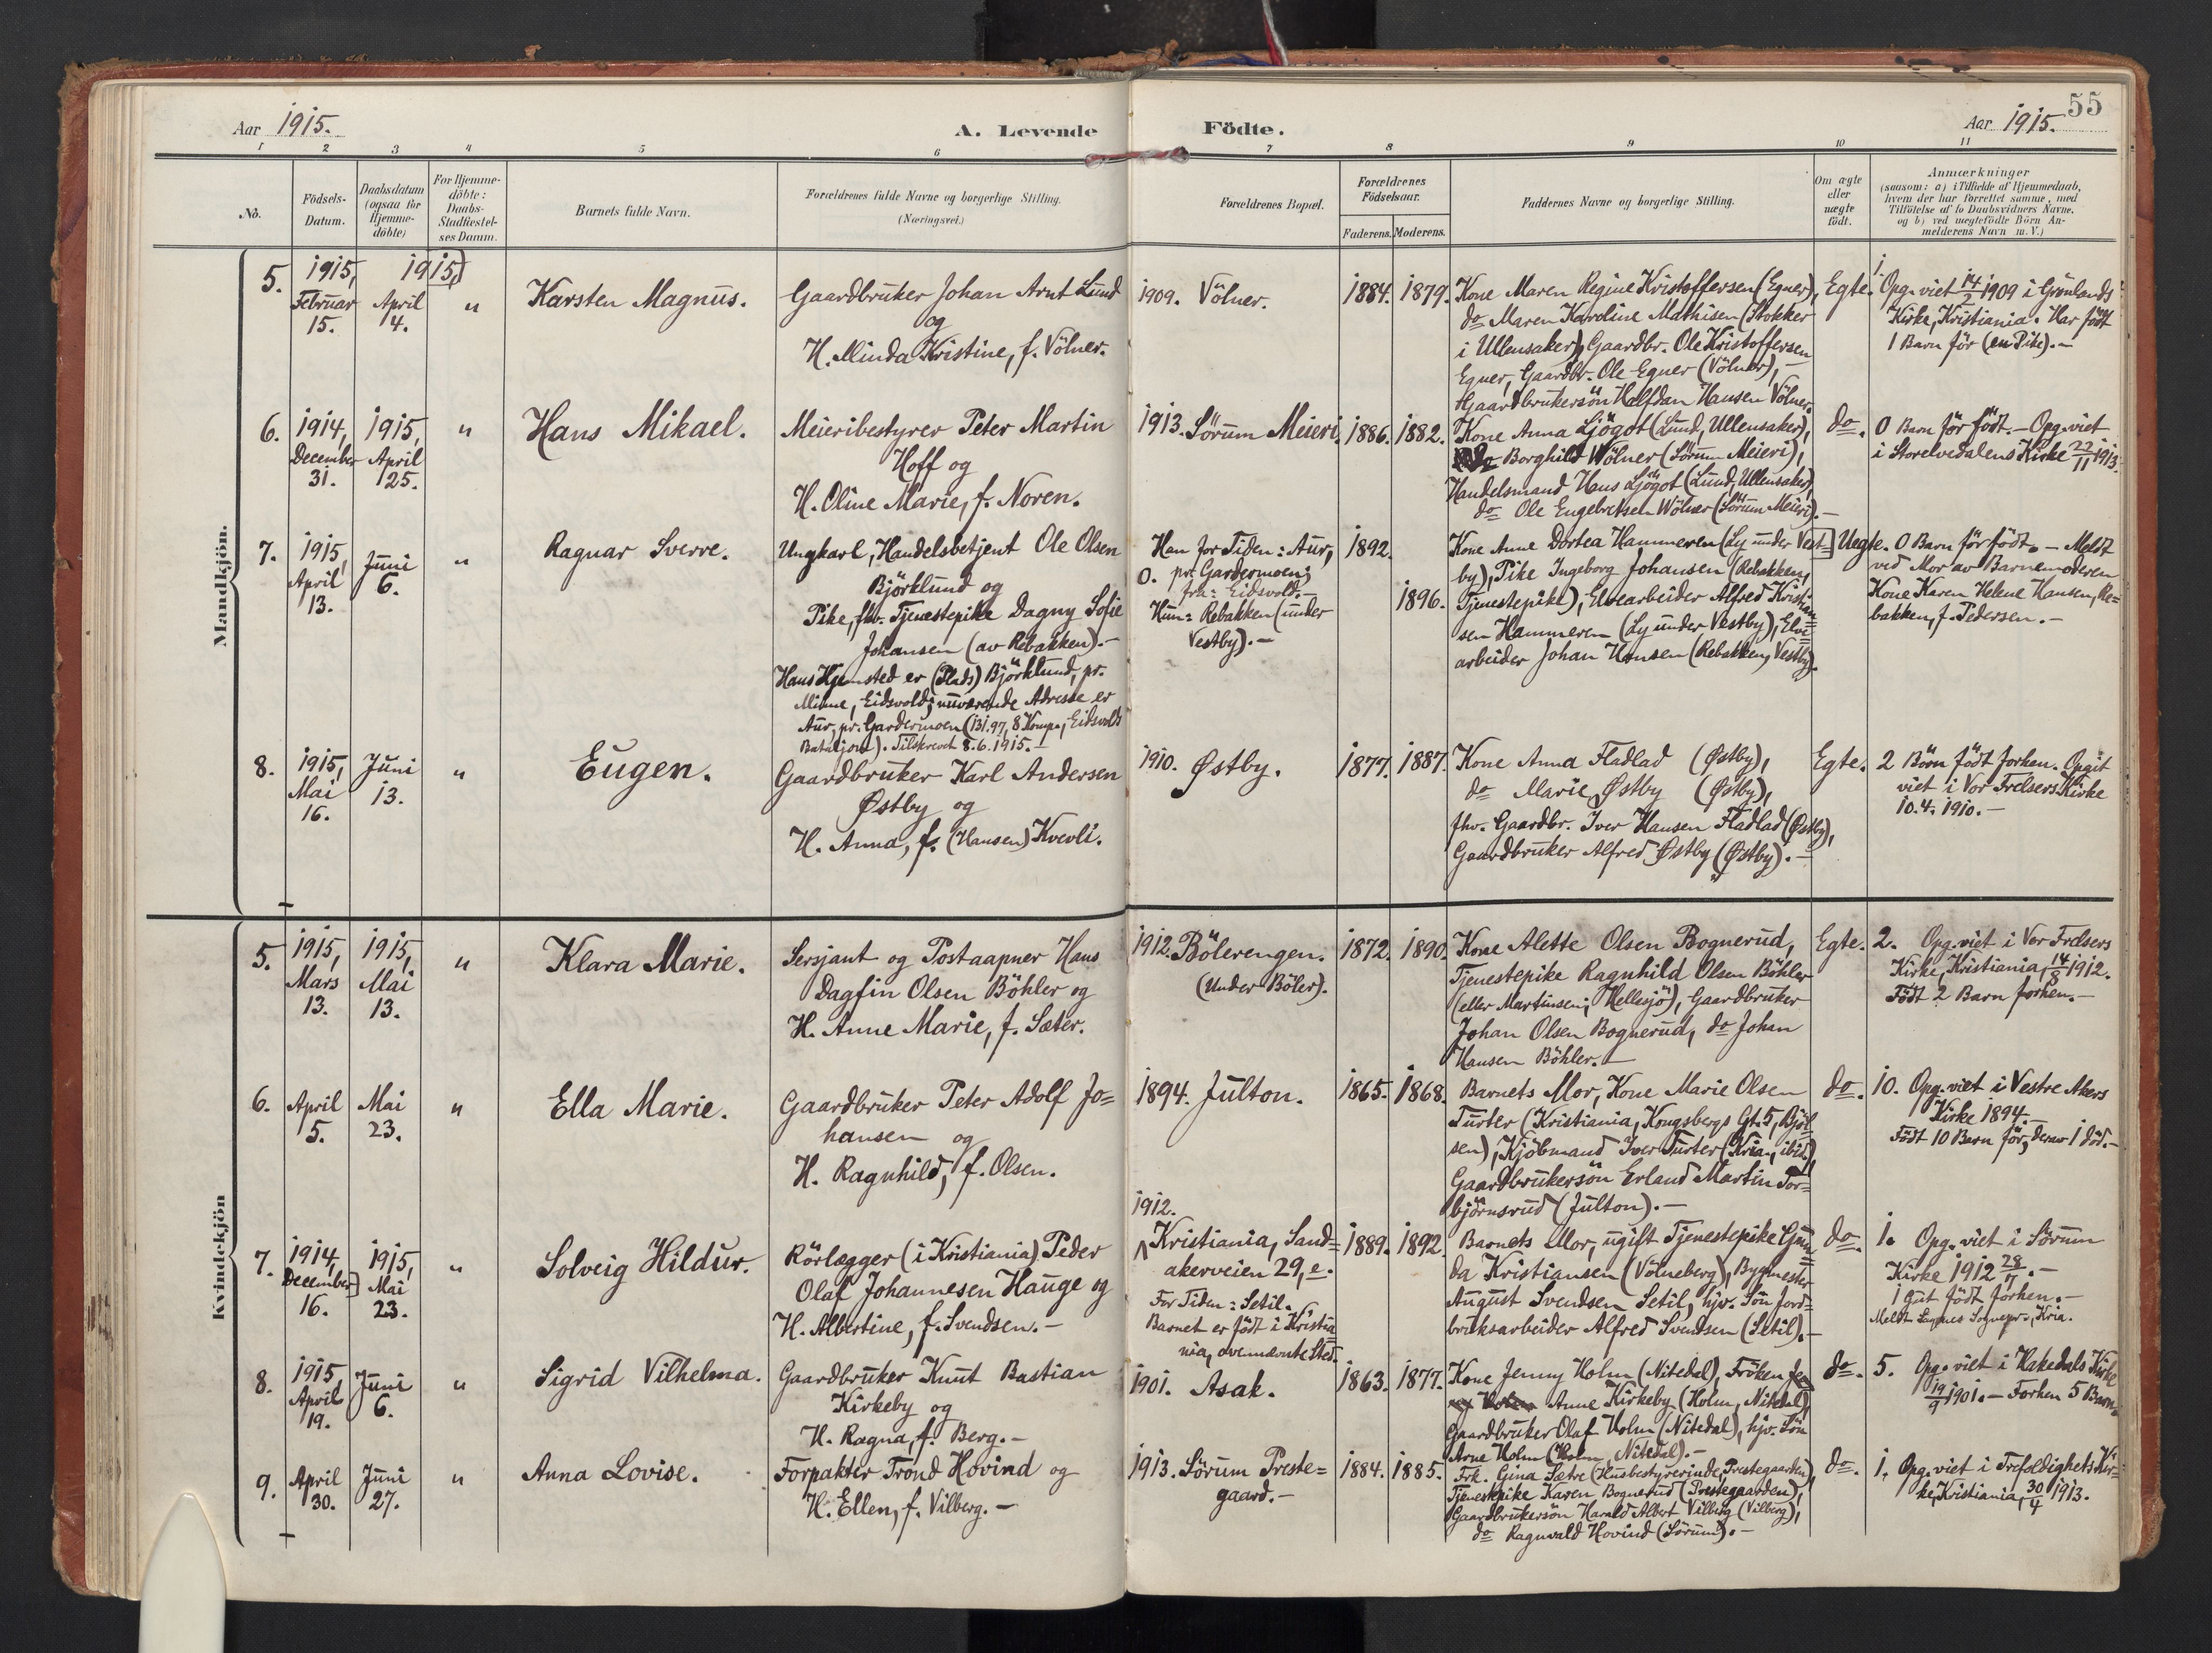 55
Aar 1915.
A. Levende Födte.
Aar 1915.
1 2 3 4 5 6 7 8 9 10 11
No.
Födsels-
Datum.
Daabsdatum
(ogsaa for
Hjemme-
döbte)
For Hjemme-
döbte:
Daabs-
Stadfæstel-
ses Datum.
Barnets fulde Navn.
Forældrenes fulde Navne og borgerlige Stilling.
(Næringsvei.)
Forældrenes Bopæl.
Forældrenes
Födselsaar.
Faderens. Moderens.
Faddernes Navne og borgerlige Stilling.
Om ægte
eller
uægte
födt.
Anmærkninger
(saasom: a) i Tilfælde af Hjemmedaab,
hvem der har forrettet samme, med
Tilföielse af to Daabsvidners Navne,
og b) ved uægtefödte Börn An-
melderens Navn m. V.)
Mandkjön.
5.
1915,
Februar
15.
1915,
April
4.
"
Karsten Magnus.
Gaardbruker Johan Arnt Lund
og
H. Minda Kristine, f. Völner.
1909. Völner.
1884. 1879.
Kone Maren Regine Kristoffersen (Egner),
do Maren Karoline Mathisen (Stokker
i Ullensaker), Gaardbr. Ole Kristoffersen
Egner, Gaardbr. Ole Egner (Völner), —
Gaardbrukersön Halfdan Hansen Völner.
Egte.
1.
Opg. viet 14/2 1909 i Grønlands
Kirke, Kristiania. Har född
1 Barn för (en Pike). —
6.
1914,
December
31.
1915,
April
25.
"
Hans Mikael.
Meieribestyrer Peter Martin
Hoff og
H. Oline Marie, f. Noren.
1913. Sörum Meieri.
1886. 1882.
Kone Anna Ljögot (Lund, Ullensaker),
do Borghild Wölner (Sörum Meieri),
Handelsmand Hans Ljögot (Lund, Ullensaker),
do Ole Engebretsen Wölner (Sörum Meieri). —
do.
0 Barn för född. — Opg. viet
i Storelvedalens Kirke 22/11 1913.
7.
1915,
April
13.
Juni
6.
"
Ragnar Sverre.
Ungkarl, Handelsbetjent Ole Olsen
Björklund og
Pike, fhv. Tjenestepike Dagny Sofie
Johansen (av Rebakken). —
Hans Hjemsted er (Plads) Björklund, pr.
Minne, Eidsvold; nuværende Adresse er
Aur, pr. Gardermoen (131.97, 8 Komp., Eidsvolds
Bataljon). Tilskrevet 8.6.1915. —
Han for Tiden: Aur,
o. pr. Gardermoen;
fra: Eidsvold. —
Hun: Rebakken (under
Vestby). —
1892.
1896.
Kone Anne Dortea Hammeren (Ly under Vest=
by), Pike Ingeborg Johansen (Rebakken,
Tjenestepike), Elvearbeider Alfred Kristian=
sen Hammeren (Ly under Vestby), Elve=
arbeider Johan Hansen (Rebakken, Vestby).
Uegte.
0 Barn för född. — Meldt
ved Mor av Barnemoderen
Kone Karen Helene Hansen, Re=
bakken, f. Pedersen. —
8.
1915,
Mai
16.
Juni
13.
"
Eugen.
Gaardbruker Karl Andersen
Østby og
H. Anna, f. (Hansen) Kvevli.
1910. Østby.
1877. 1887.
Kone Anna Fladlad (Østby),
do Marie Østby (Østby),
fhv. Gaardbr. Iver Hansen Fladlad (Østby),
Gaardbruker Alfred Østby (Østby). —
Egte.
2 Börn födt forhen. Opgit
viet i Vor Frelsers Kirke
10.4.1910. —
Kvindekjön
5.
1915,
Mars
13.
1915,
Mai
13.
"
Klara Marie.
Sersjant og Postaapner Hans
Dagfin Olsen Böhler og
H. Anne Marie, f. Sæter.
1912. Bölerengen.
(Under Böler).
1872. 1890.
Kone Alette Olsen Bognerud,
Tjenestepike Ragnhild Olsen Böhler
(eller Martinsen; Hellesjö), Gaardbruker
Johan Olsen Bognerud, do Johan
Hansen Böhler. —
Egte.
2. Opg. viet i Vor Frelsers
Kirke, Kristiania, 14/8 1912.
Födt 2 Barn forhen. —
6.
April
5.
Mai
23.
"
Ella Marie.
Gaardbruker Peter Adolf Jo=
hansen og
H. Ragnhild, f. Olsen.
1894. Julton.
1865. 1868.
Barnets Mor, Kone Marie Olsen
Turter (Kristiania, Kongsbergs Gt. 5, Bjöl=
sen), Kjöbmand Iver Turter (Kria., ibid.),
Gaardbrukersön Erland Martin Tor=
björnsrud (Julton). —
do.
10. Opg. viet i Vestre Akers
Kirke 1894. —
Födt 10 Barn för, derav 1 död. —
7.
1914,
December
16.
1915,
Mai
23.
"
Solveig Hildur.
Rörlægger (i Kristiania) Peder
Olaf Johannesen Hauge og
H. Albertine, f. Svendsen. —
1912.
Kristiania, Sand=
akerveien 29, e.
For Tiden: Setil.
Barnet er födt i Kristia=
nia, ovennævnte Sted.
1889. 1892.
Barnets Mor, ugift Tjenestepike Gun=
da Kristiansen (Völneberg), Bygmester
August Svendsen Setil, hjv. Sön Jord=
bruksarbeider Alfred Svendsen (Setil). —
do.
1. Opg. viet i Sörum
Kirke 1912 28/7. —
1 Gut födt forhen. —
Meldt Sognepr., Kria.
8.
1915,
April
19.
Juni
6.
"
Sigrid Vilhelma.
Gaardbruker Knut Bastian
Kirkeby og
H. Ragna, f. Berg. —
1901. Asak.
1863. 1877.
Kone Jenny Holm (Nitedal), Fröken
Anne Kirkeby (Holm, Nitedal),
Gaardbruker Olaf Holm (Nitedal), hjv. Sön
Arne Holm (Holm, Nitedal). —
do.
5. Opg. viet i Hakedals Kirke
19/9 1901. — Forhen 5 Barn.
9.
April
30.
Juni
27.
"
Anna Lovise.
Forpakter Trond Hovind og
H. Ellen, f. Vilberg. —
1913. Sörum Preste=
gaard. —
1884. 1885.
Frk. Gina Sætre (Husbestyrerinde, Prestegaarden),
Tjenestepike Karen Bognerud (Prestegaarden),
Gaardbrukersön Harald Albert Vilberg (Vilberg),
do Ragnvald Hovind (Sörum). —
do.
1. Opg. viet i Trefoldighets Kir=
ke, Kristiania, 30/4 1913.